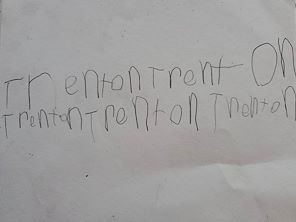 Trenton Trent On
Trenton Trenton Trenton